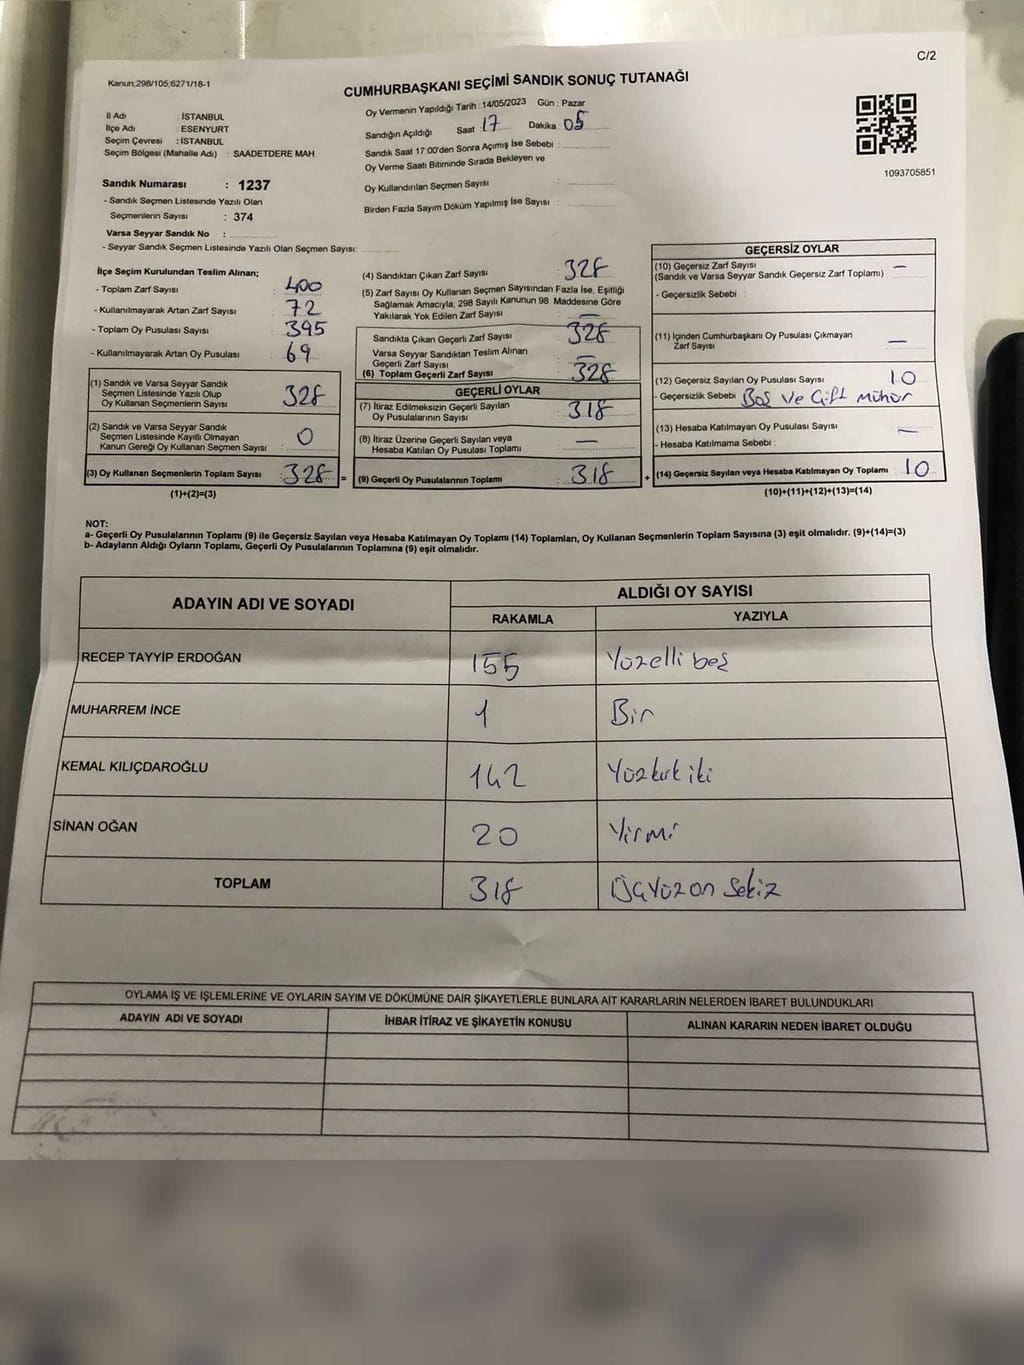 C/2
Kanun:298/105;6271/18-1
CUMHURBAŞKANI SEÇİMİ SANDIK SONUÇ TUTANAĞI
İl Adı : İSTANBUL
İlçe Adı : ESENYURT
Seçim Çevresi : İSTANBUL
Seçim Bölgesi (Mahalle Adı) : SAADETDERE MAH.
Oy Vermenin Yapıldığı Tarih : 14/05/2023 Gün : Pazar
Sandığın Açıldığı Saat 17 Dakika 05
Sandık Saat 17:00'den Sonra Açımış İse Sebebi :
Oy Verme Saati Bitiminde Sırada Bekleyen ve
Oy Kullandırılan Seçmen Sayısı :
Birden Fazla Sayım Döküm Yapılmış İse Sayısı :
1093705851
Sandık Numarası : 1237
- Sandık Seçmen Listesinde Yazılı Olan
Seçmenlerin Sayısı : 374
Varsa Seyyar Sandık No :
- Seyyar Sandık Seçmen Listesinde Yazılı Olan Seçmen Sayısı:
İlçe Seçim Kurulundan Teslim Alınan;
- Toplam Zarf Sayısı : 400
- Kullanılmayarak Artan Zarf Sayısı : 72
- Toplam Oy Pusulası Sayısı : 395
- Kullanılmayarak Artan Oy Pusulası : 69
(1) Sandık ve Varsa Seyyar Sandık
Seçmen Listesinde Yazılı Olup
Oy Kullanan Seçmenlerin Sayısı : 328
(2) Sandık ve Varsa Seyyar Sandık
Seçmen Listesinde Kayıtlı Olmayan
Kanun Gereği Oy Kullanan Seçmen Sayısı : 0
(3) Oy Kullanan Seçmenlerin Toplam Sayısı : 328 =
(1)+(2)=(3)
(4) Sandıktan Çıkan Zarf Sayısı : 328
(5) Zarf Sayısı Oy Kullanan Seçmen Sayısından Fazla İse, Eşitliği
Sağlamak Amacıyla; 298 Sayılı Kanunun 98. Maddesine Göre
Yakılarak Yok Edilen Zarf Sayısı : —
Sandıkta Çıkan Geçerli Zarf Sayısı : 328
Varsa Seyyar Sandıktan Teslim Alınan
Geçerli Zarf Sayısı : —
(6) Toplam Geçerli Zarf Sayısı : 328
GEÇERLİ OYLAR
(7) İtiraz Edilmeksizin Geçerli Sayılan
Oy Pusulalarının Sayısı : 318
(8) İtiraz Üzerine Geçerli Sayılan veya
Hesaba Katılan Oy Pusulası Toplamı : —
(9) Geçerli Oy Pusulalarının Toplamı : 318 +
GEÇERSİZ OYLAR
(10) Geçersiz Zarf Sayısı : —
(Sandık ve Varsa Seyyar Sandık Geçersiz Zarf Toplamı)
- Geçersizlik Sebebi :
(11) İçinden Cumhurbaşkanı Oy Pusulası Çıkmayan
Zarf Sayısı : —
(12) Geçersiz Sayılan Oy Pusulası Sayısı : 10
- Geçersizlik Sebebi : Boş ve Çift mühür
(13) Hesaba Katılmayan Oy Pusulası Sayısı : —
- Hesaba Katılmama Sebebi :
(14) Geçersiz Sayılan veya Hesaba Katılmayan Oy Toplamı : 10
(10)+(11)+(12)+(13)=(14)
NOT:
a- Geçerli Oy Pusulalarının Toplamı (9) ile Geçersiz Sayılan veya Hesaba Katılmayan Oy Toplamı (14) Toplamları, Oy Kullanan Seçmenlerin Toplam Sayısına (3) eşit olmalıdır. (9)+(14)=(3)
b- Adayların Aldığı Oyların Toplamı, Geçerli Oy Pusulalarının Toplamına (9) eşit olmalıdır.
ADAYIN ADI VE SOYADI
ALDIĞI OY SAYISI
RAKAMLA YAZIYLA
RECEP TAYYİP ERDOĞAN 155 Yüzelli beş
MUHARREM İNCE 1 Bir
KEMAL KILIÇDAROĞLU 142 Yüzkırk iki
SİNAN OĞAN 20 Yirmi
TOPLAM 318 Üçyüz on Sekiz
OYLAMA İŞ VE İŞLEMLERİNE VE OYLARIN SAYIM VE DÖKÜMÜNE DAİR ŞİKAYETLERLE BUNLARA AİT KARARLARIN NELERDEN İBARET BULUNDUKLARI
ADAYIN ADI VE SOYADI İHBAR İTİRAZ VE ŞİKAYETİN KONUSU ALINAN KARARIN NEDEN İBARET OLDUĞU